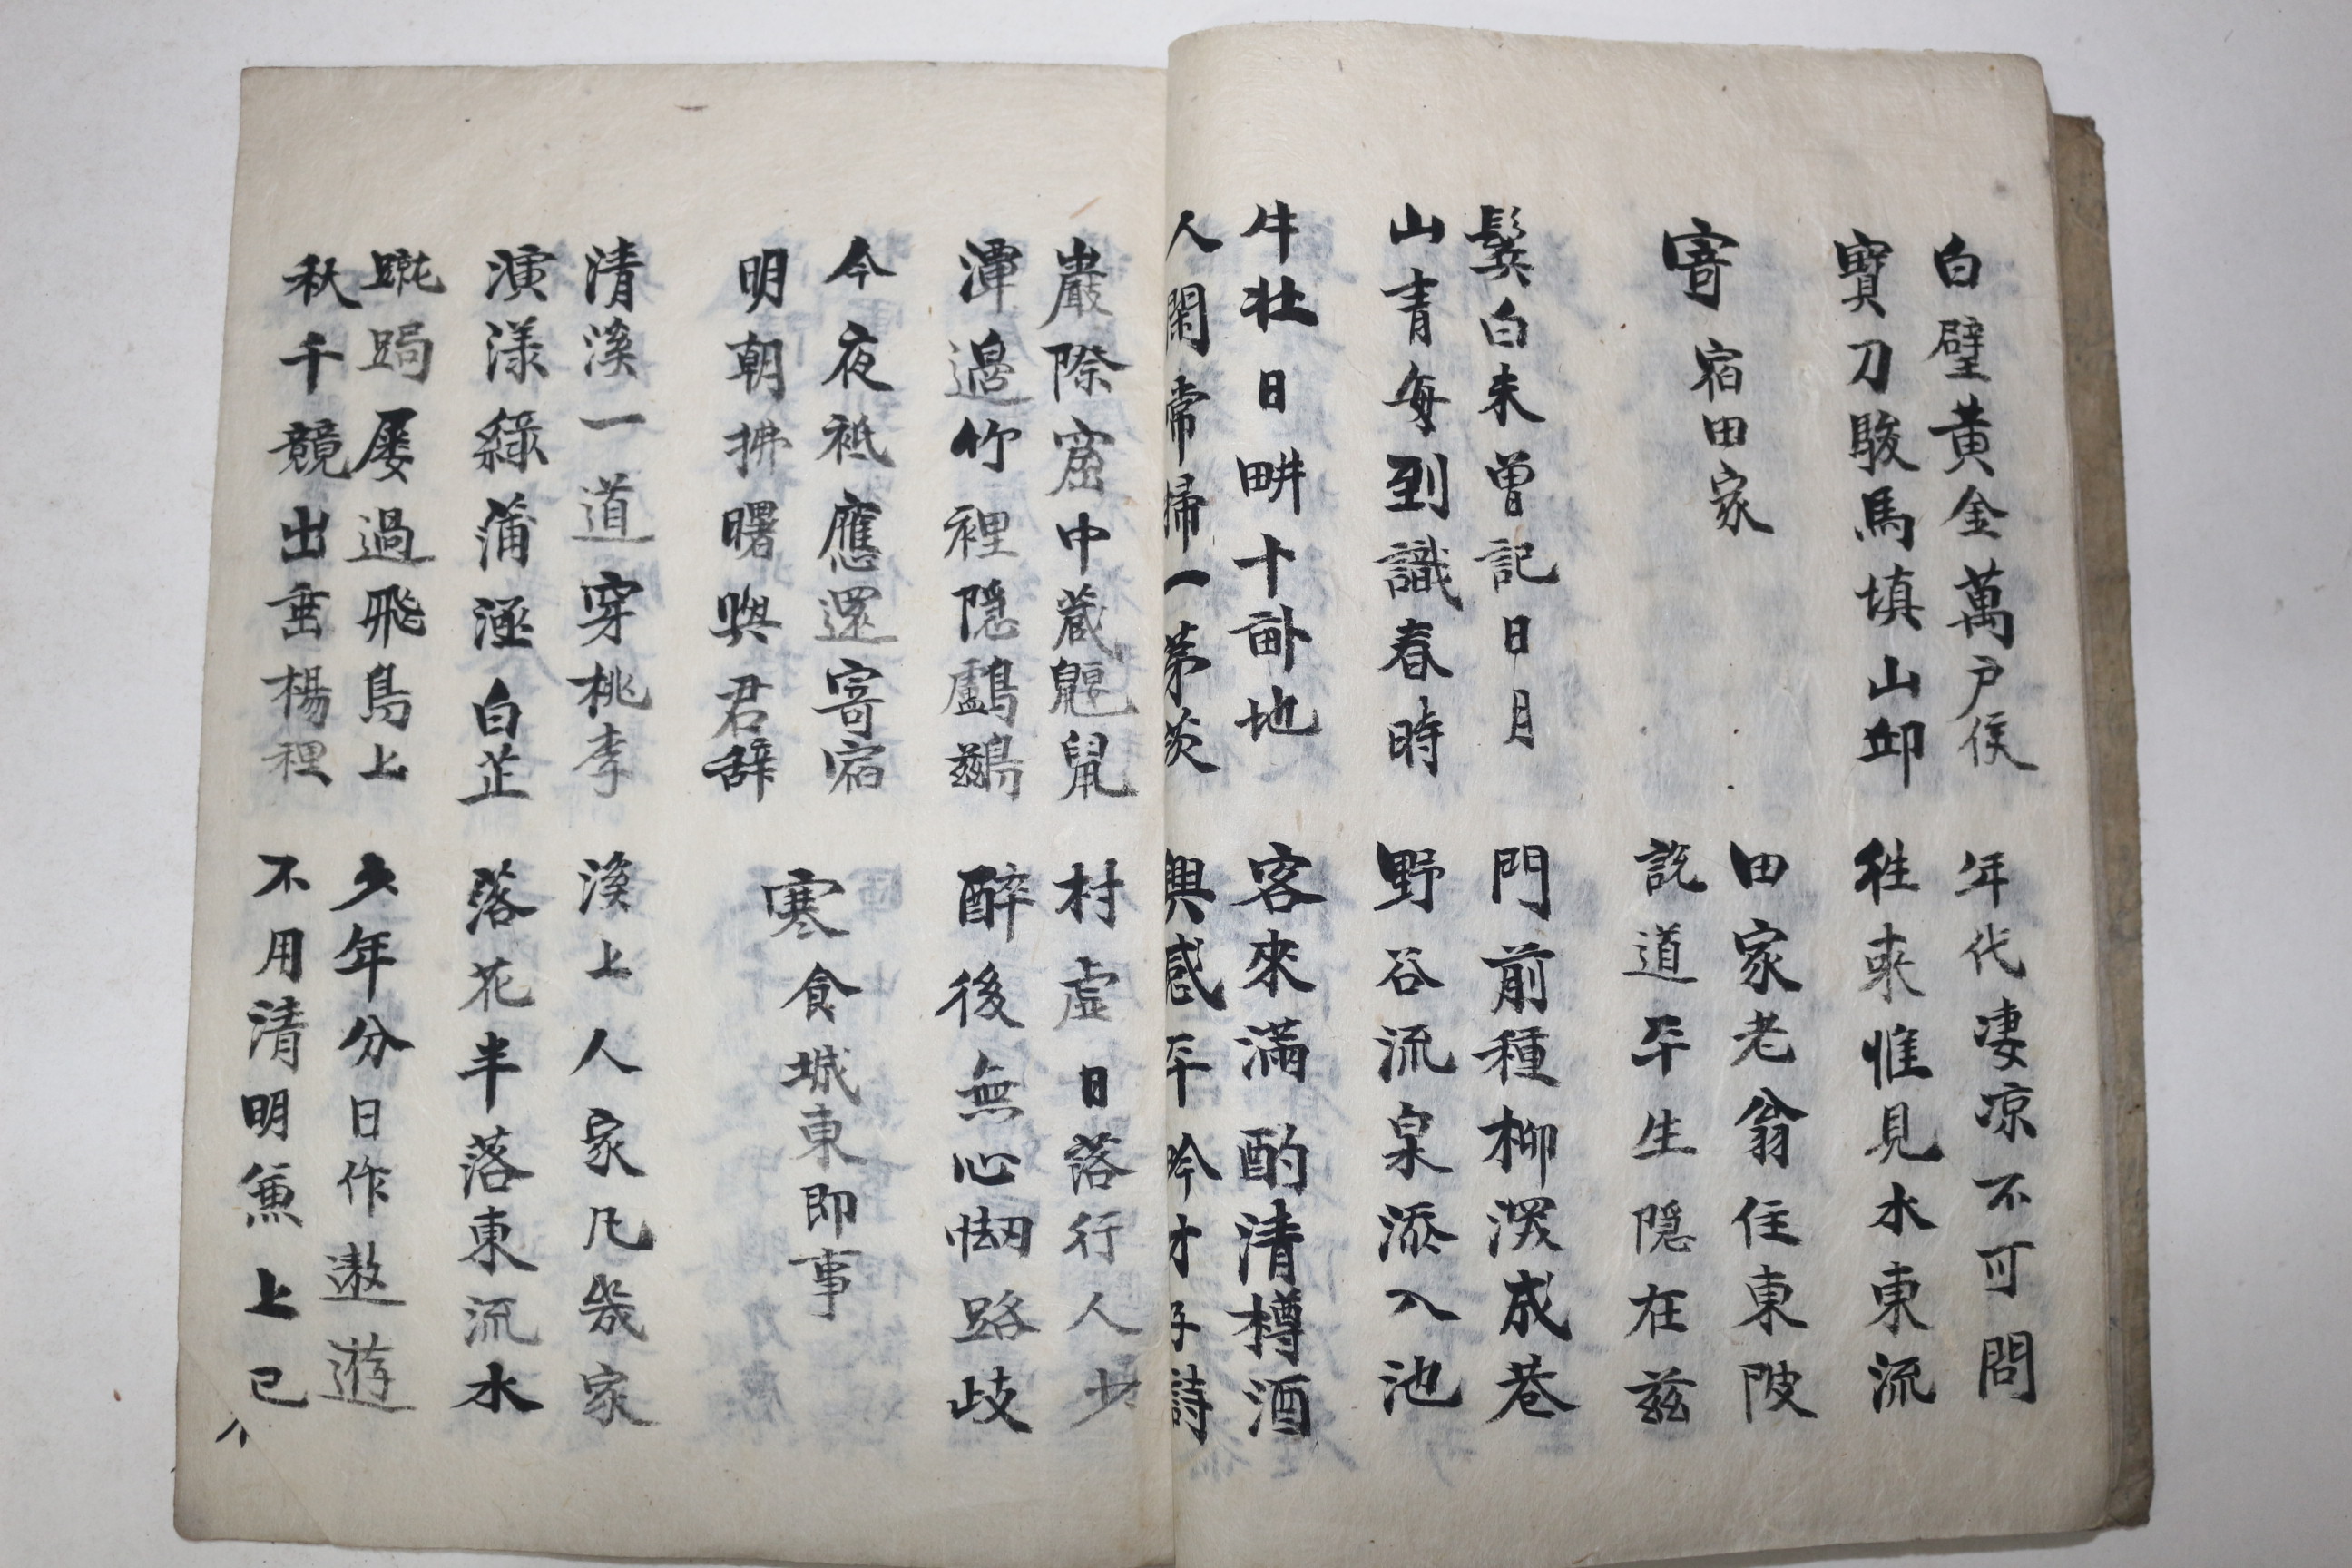 白璧黄金萬户侯 年代凄凉不可問
寳刀駿馬填山邱 徃来惟見水東流
寄宿田家 田家老翁住東陂
説道平生隠在兹
鬂白未曾記日月 門前種柳深成巷
山青每到識春時 野谷流泉添入池
牛壮日畊十畝地 客來滿酌清樽酒
人閑常掃一茅茨 興感平吟才子詩
巖際窟中蔵鼴鼠 村虚日落行人少
潭邉竹裡隠鸕鷀 醉後無心㤼路歧
今夜祗應還寄宿
明朝拂曙與君辞 寒食城東即事
清溪一道穿桃李 溪上人家凢幾家
演漾綠蒲涵白芷 落花半落東流水
蹴跼屡過飛鳥上 少年分日作遨遊
秋千競出垂楊裡 不用清明兼上已